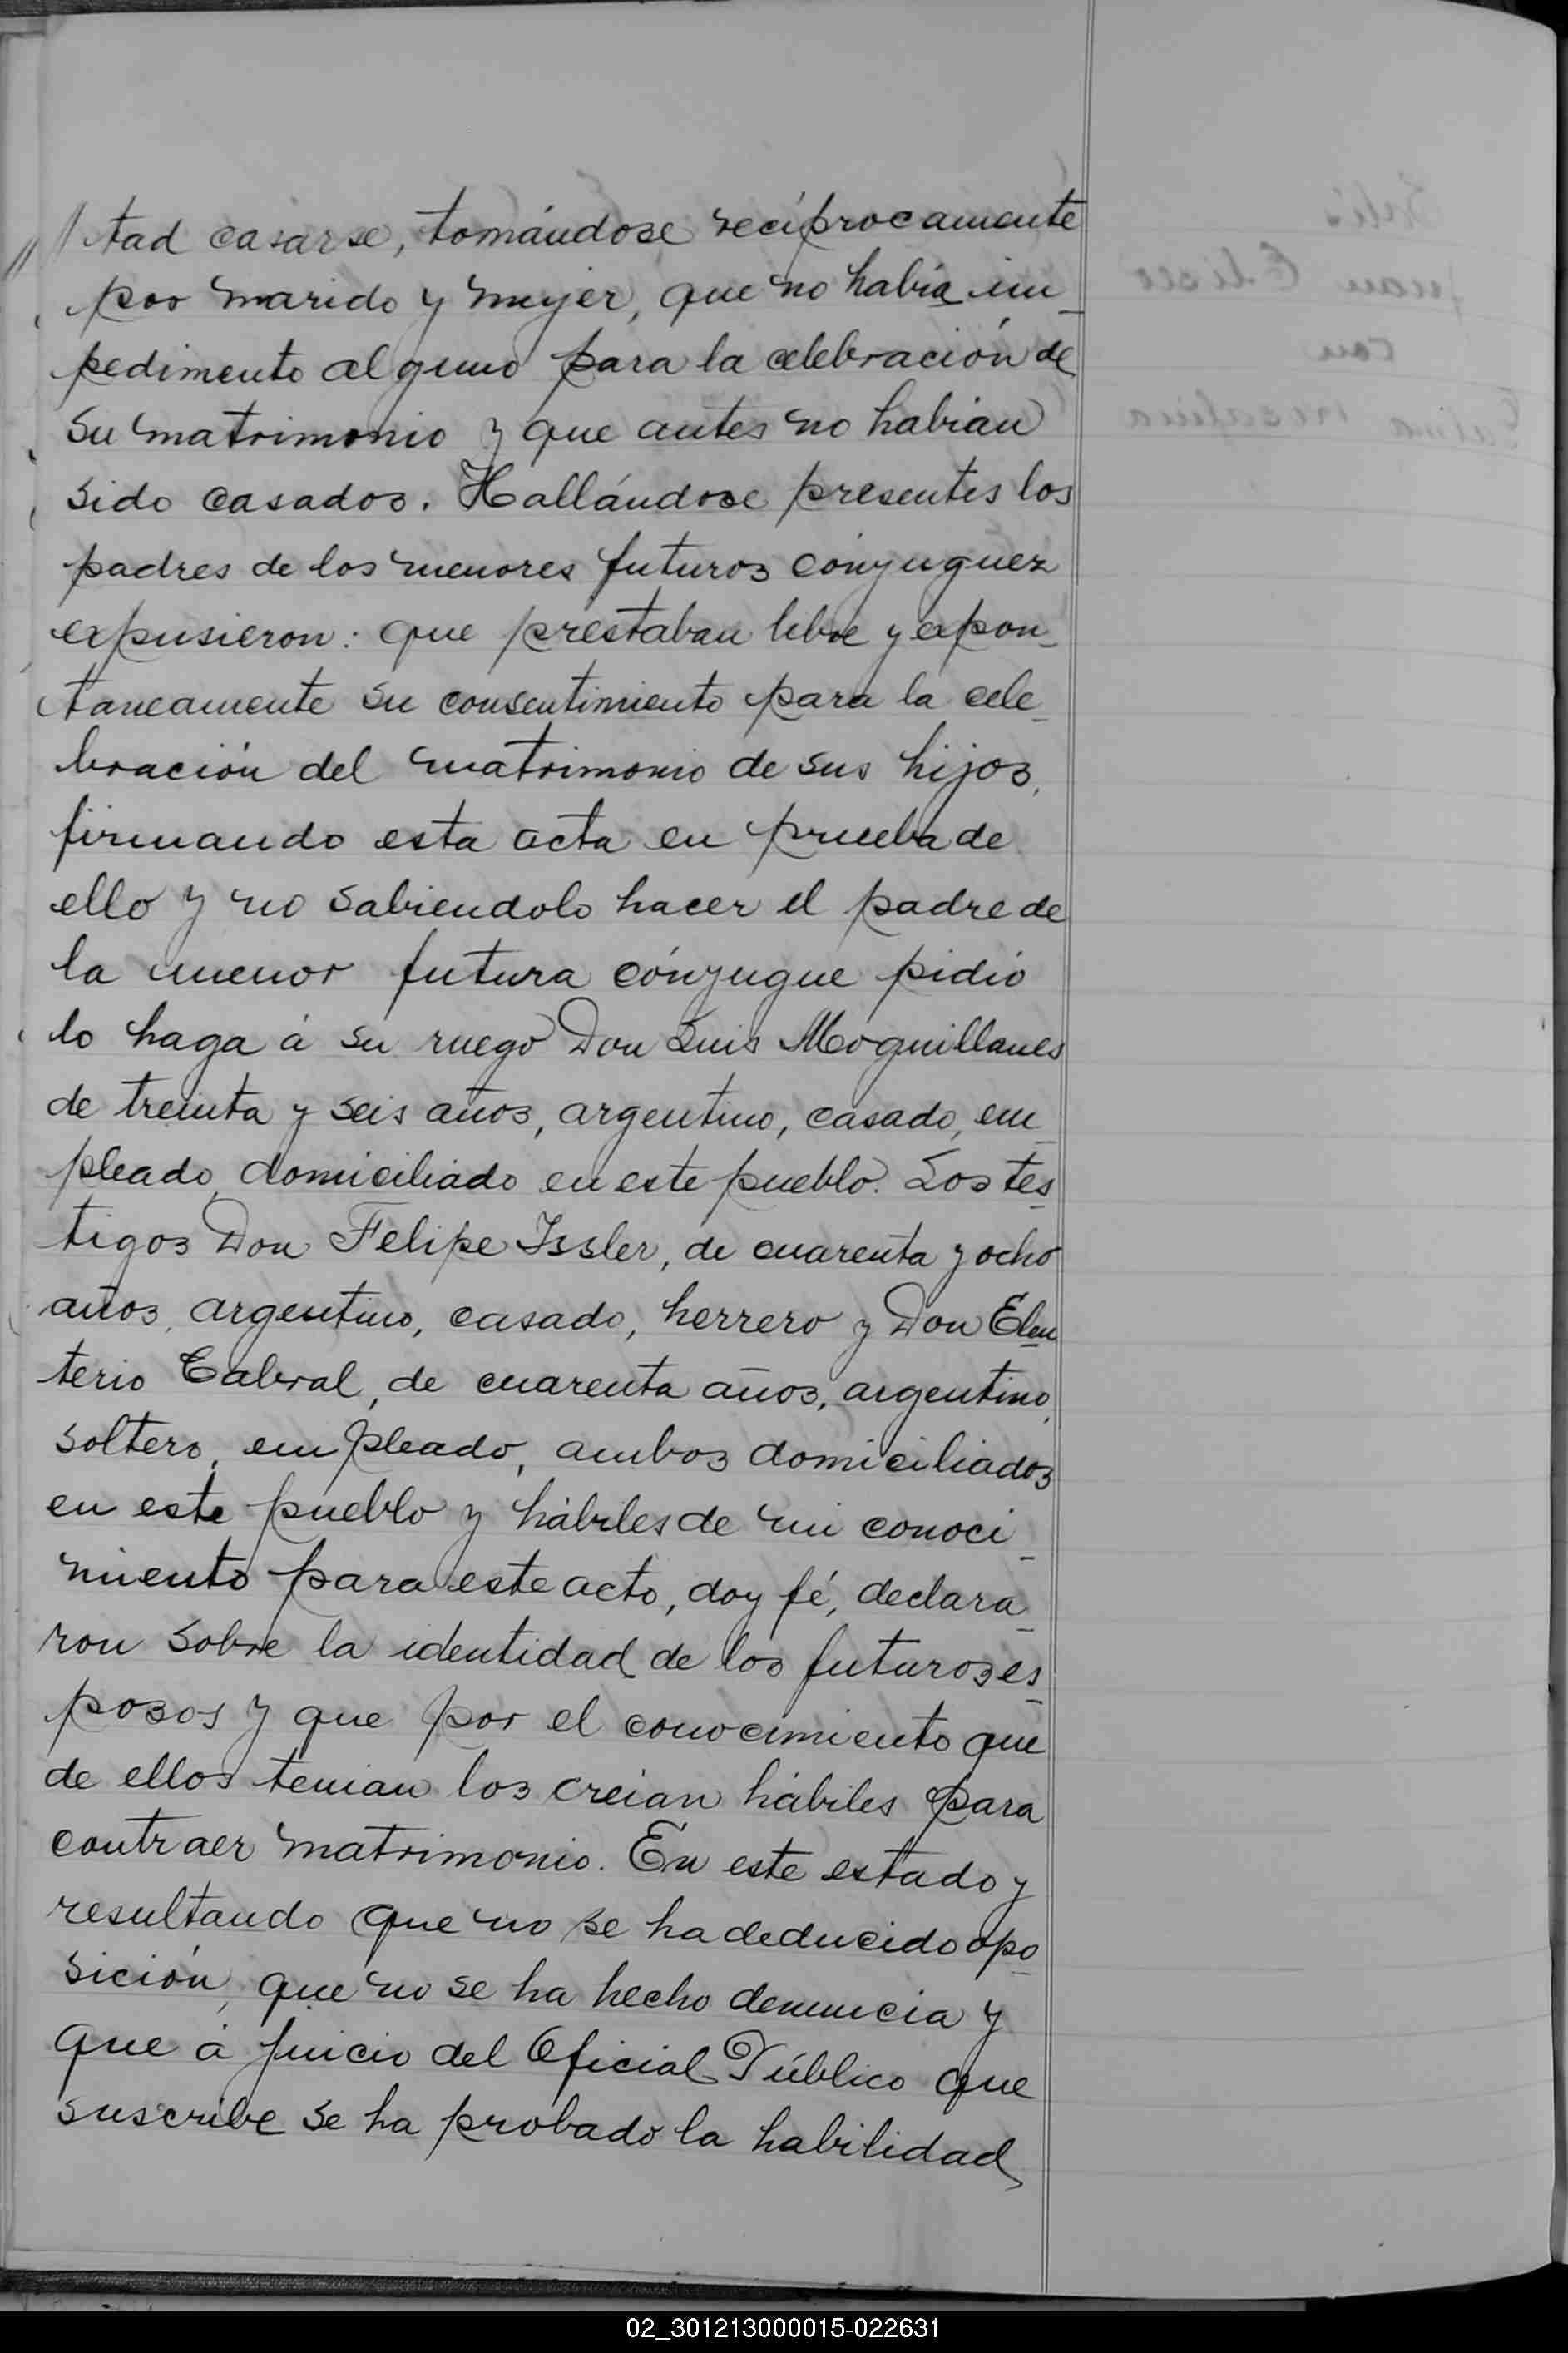 // tad casarse, tomándose recíprocamente
por marido y mujer, que no había im_
pedimento alguno para la celebración de
su matrimonio y que antes no habian
sido casados. Hallándose presentes los
padres de los menores futuros cónyuguez
expusieron: que prestaban libre y expon_
taneamente su consentimiento para la cele_
bración del matrimonio de sus hijos,
firmando esta acta en prueba de
ello y no sabiendolo hacer el padre de
la menor futura cónyugue pidió
lo haga á su ruego Don Luis Moquillanes
de treinta y seis años, argentino, casado, em_
pleado, domiciliado en este pueblo. Los tes_
tigos Don Felipe Issler, de cuarenta y ocho
años, argentino, casado, herrero y Don Eleu_
terio Cabral, de cuarenta años, argentino,
soltero, empleado, ambos domiciliados
en este pueblo y hábiles de mi conoci_
miento para este acto, doy fé, declara_
ron sobre la identidad de los futuros es_
posos y que por el conocimiento que
de ellos tenian los creian hábiles para
contraer matrimonio. En este estado y
resultando que no se ha deducido opo_
sición, que no se ha hecho denuncia y
que á juicio del Oficial Público que
suscribe se ha probado la habilidad
02_301213000015-022631